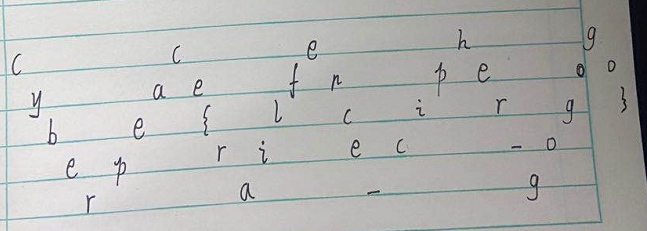 c c e h g
y a e f n p e o o
b e { l c i r g }
e p r i e c - o
r a - g